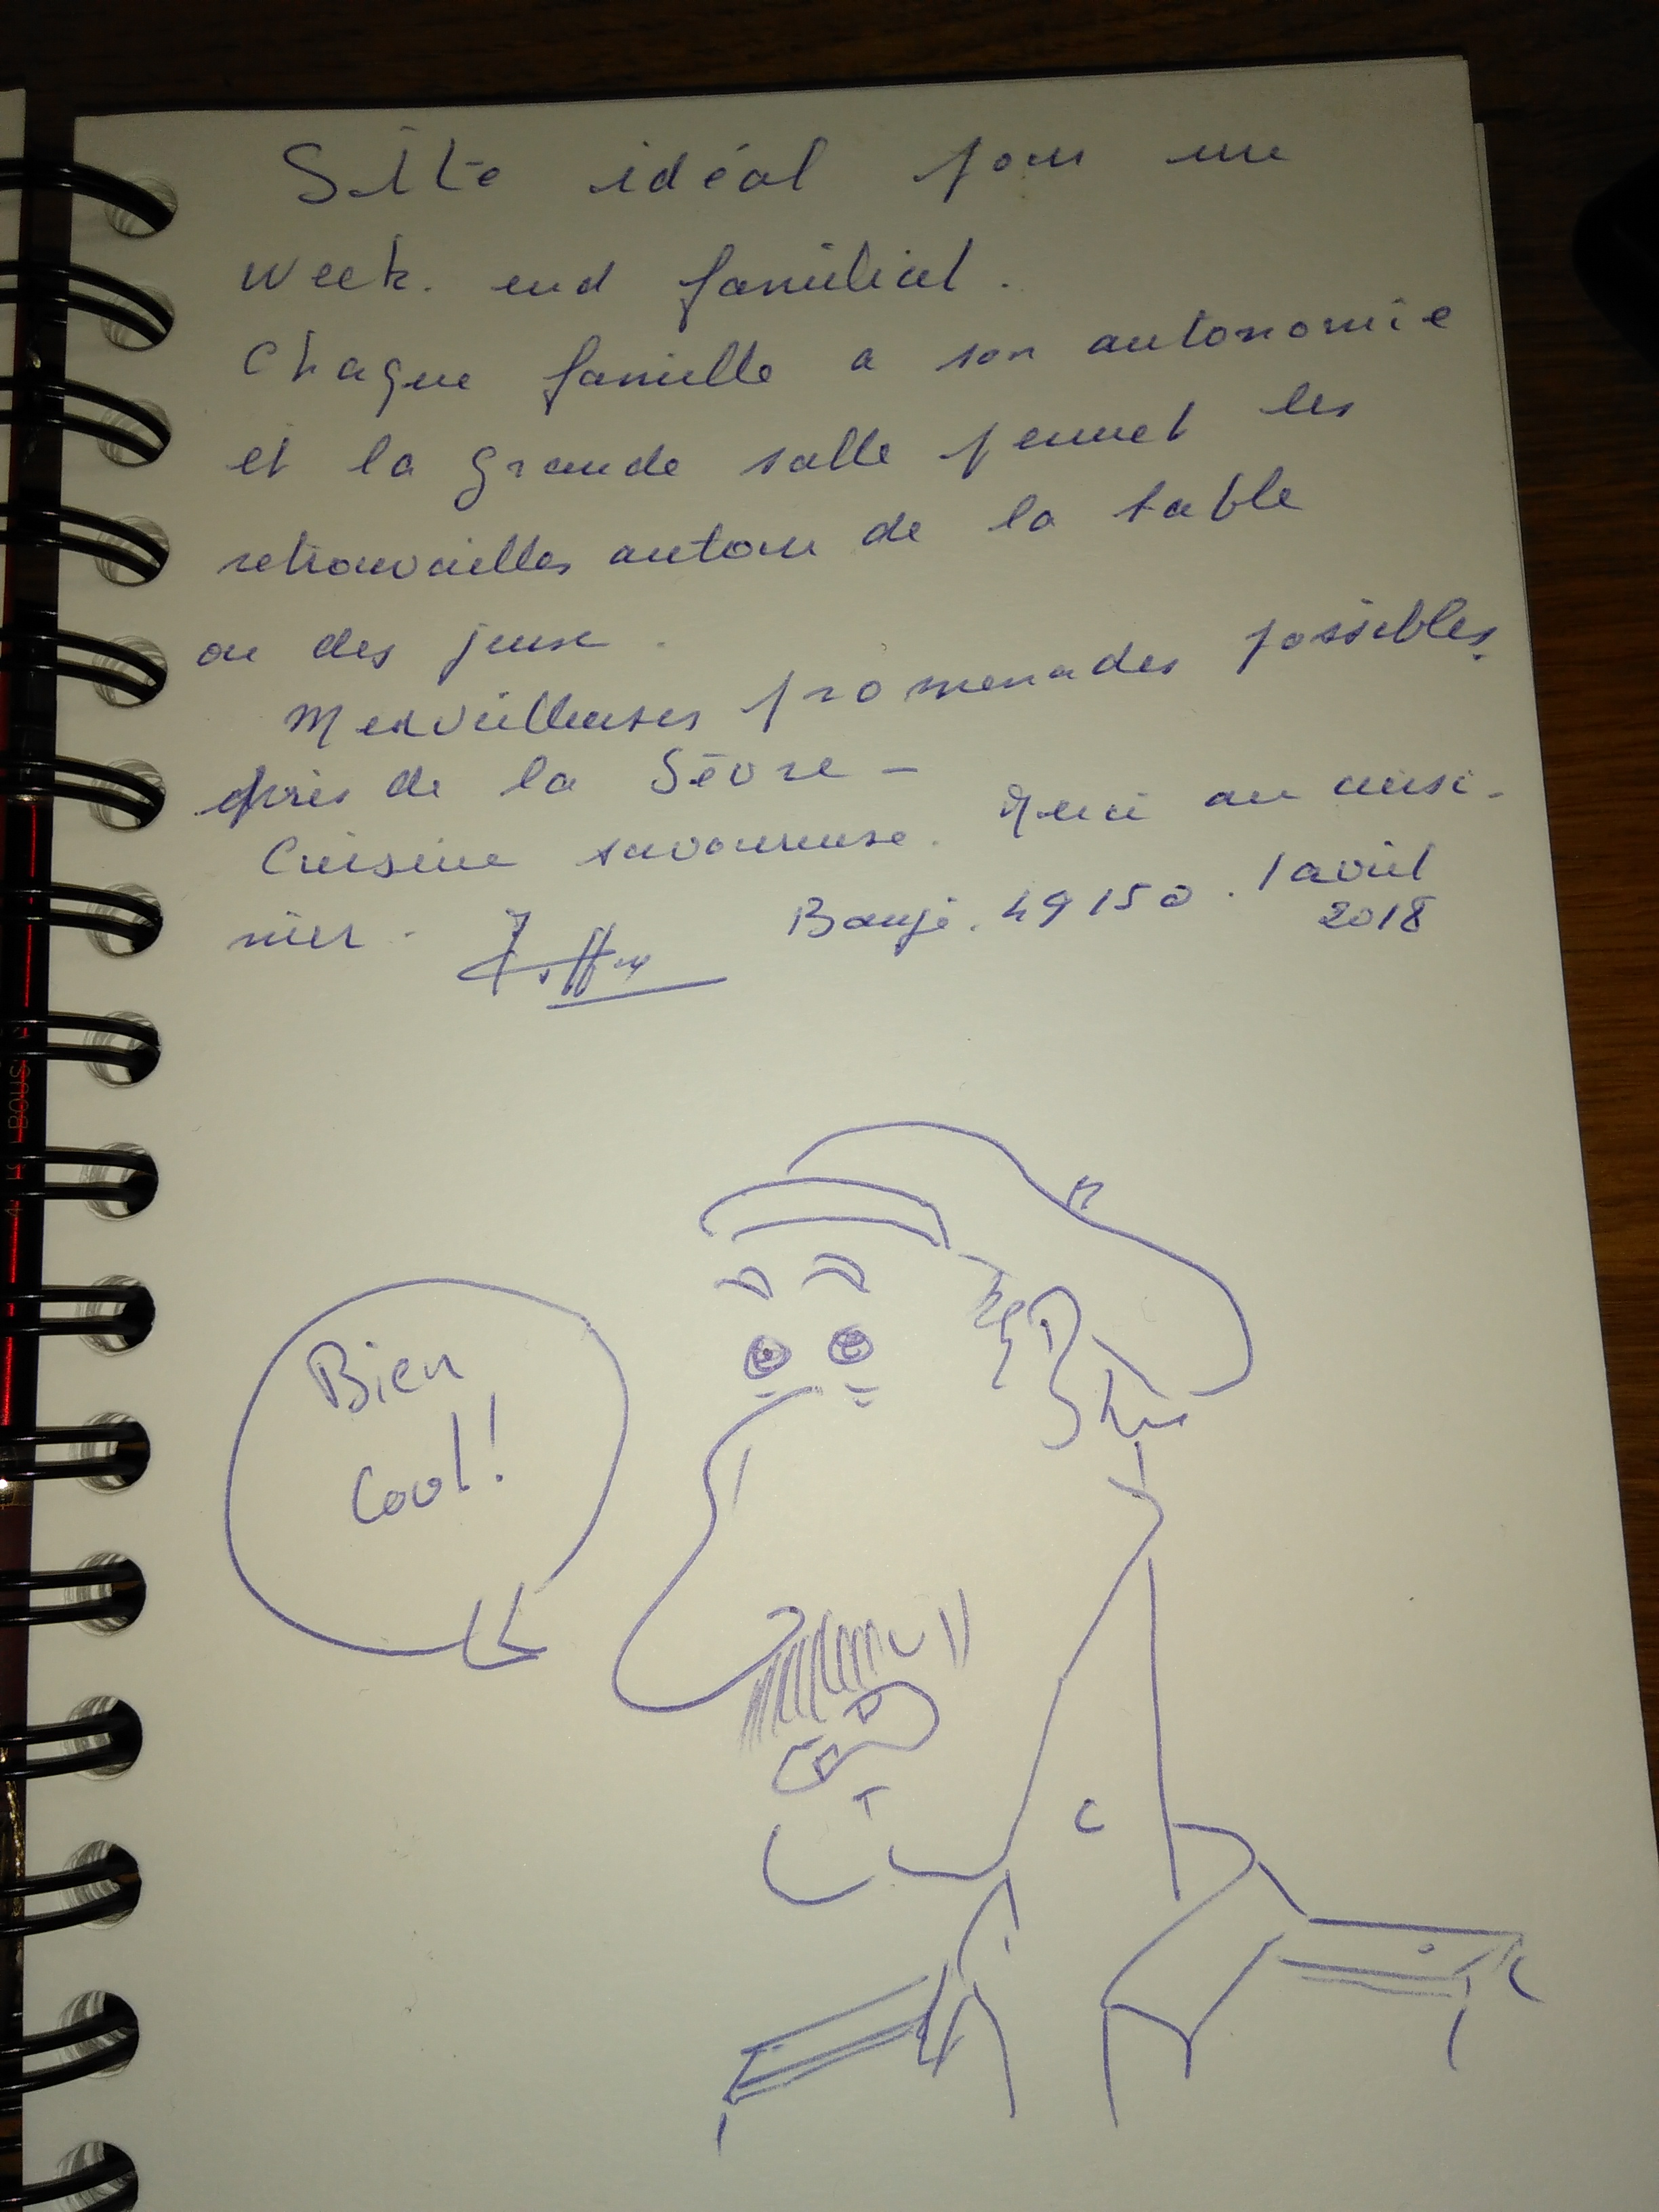 Site idéal pour une
week. end familial.
Chaque famille a son autonomie
et la grande salle permet les
retrouvailles autour de la table
ou des jeux.
Merveilleuses promenades possibles.
près de la Sèvre -
Cuisine savoureuse. Merci au cuisi-
nier. Baugé. 49150. 1 avril
2018
Bien
Cool!